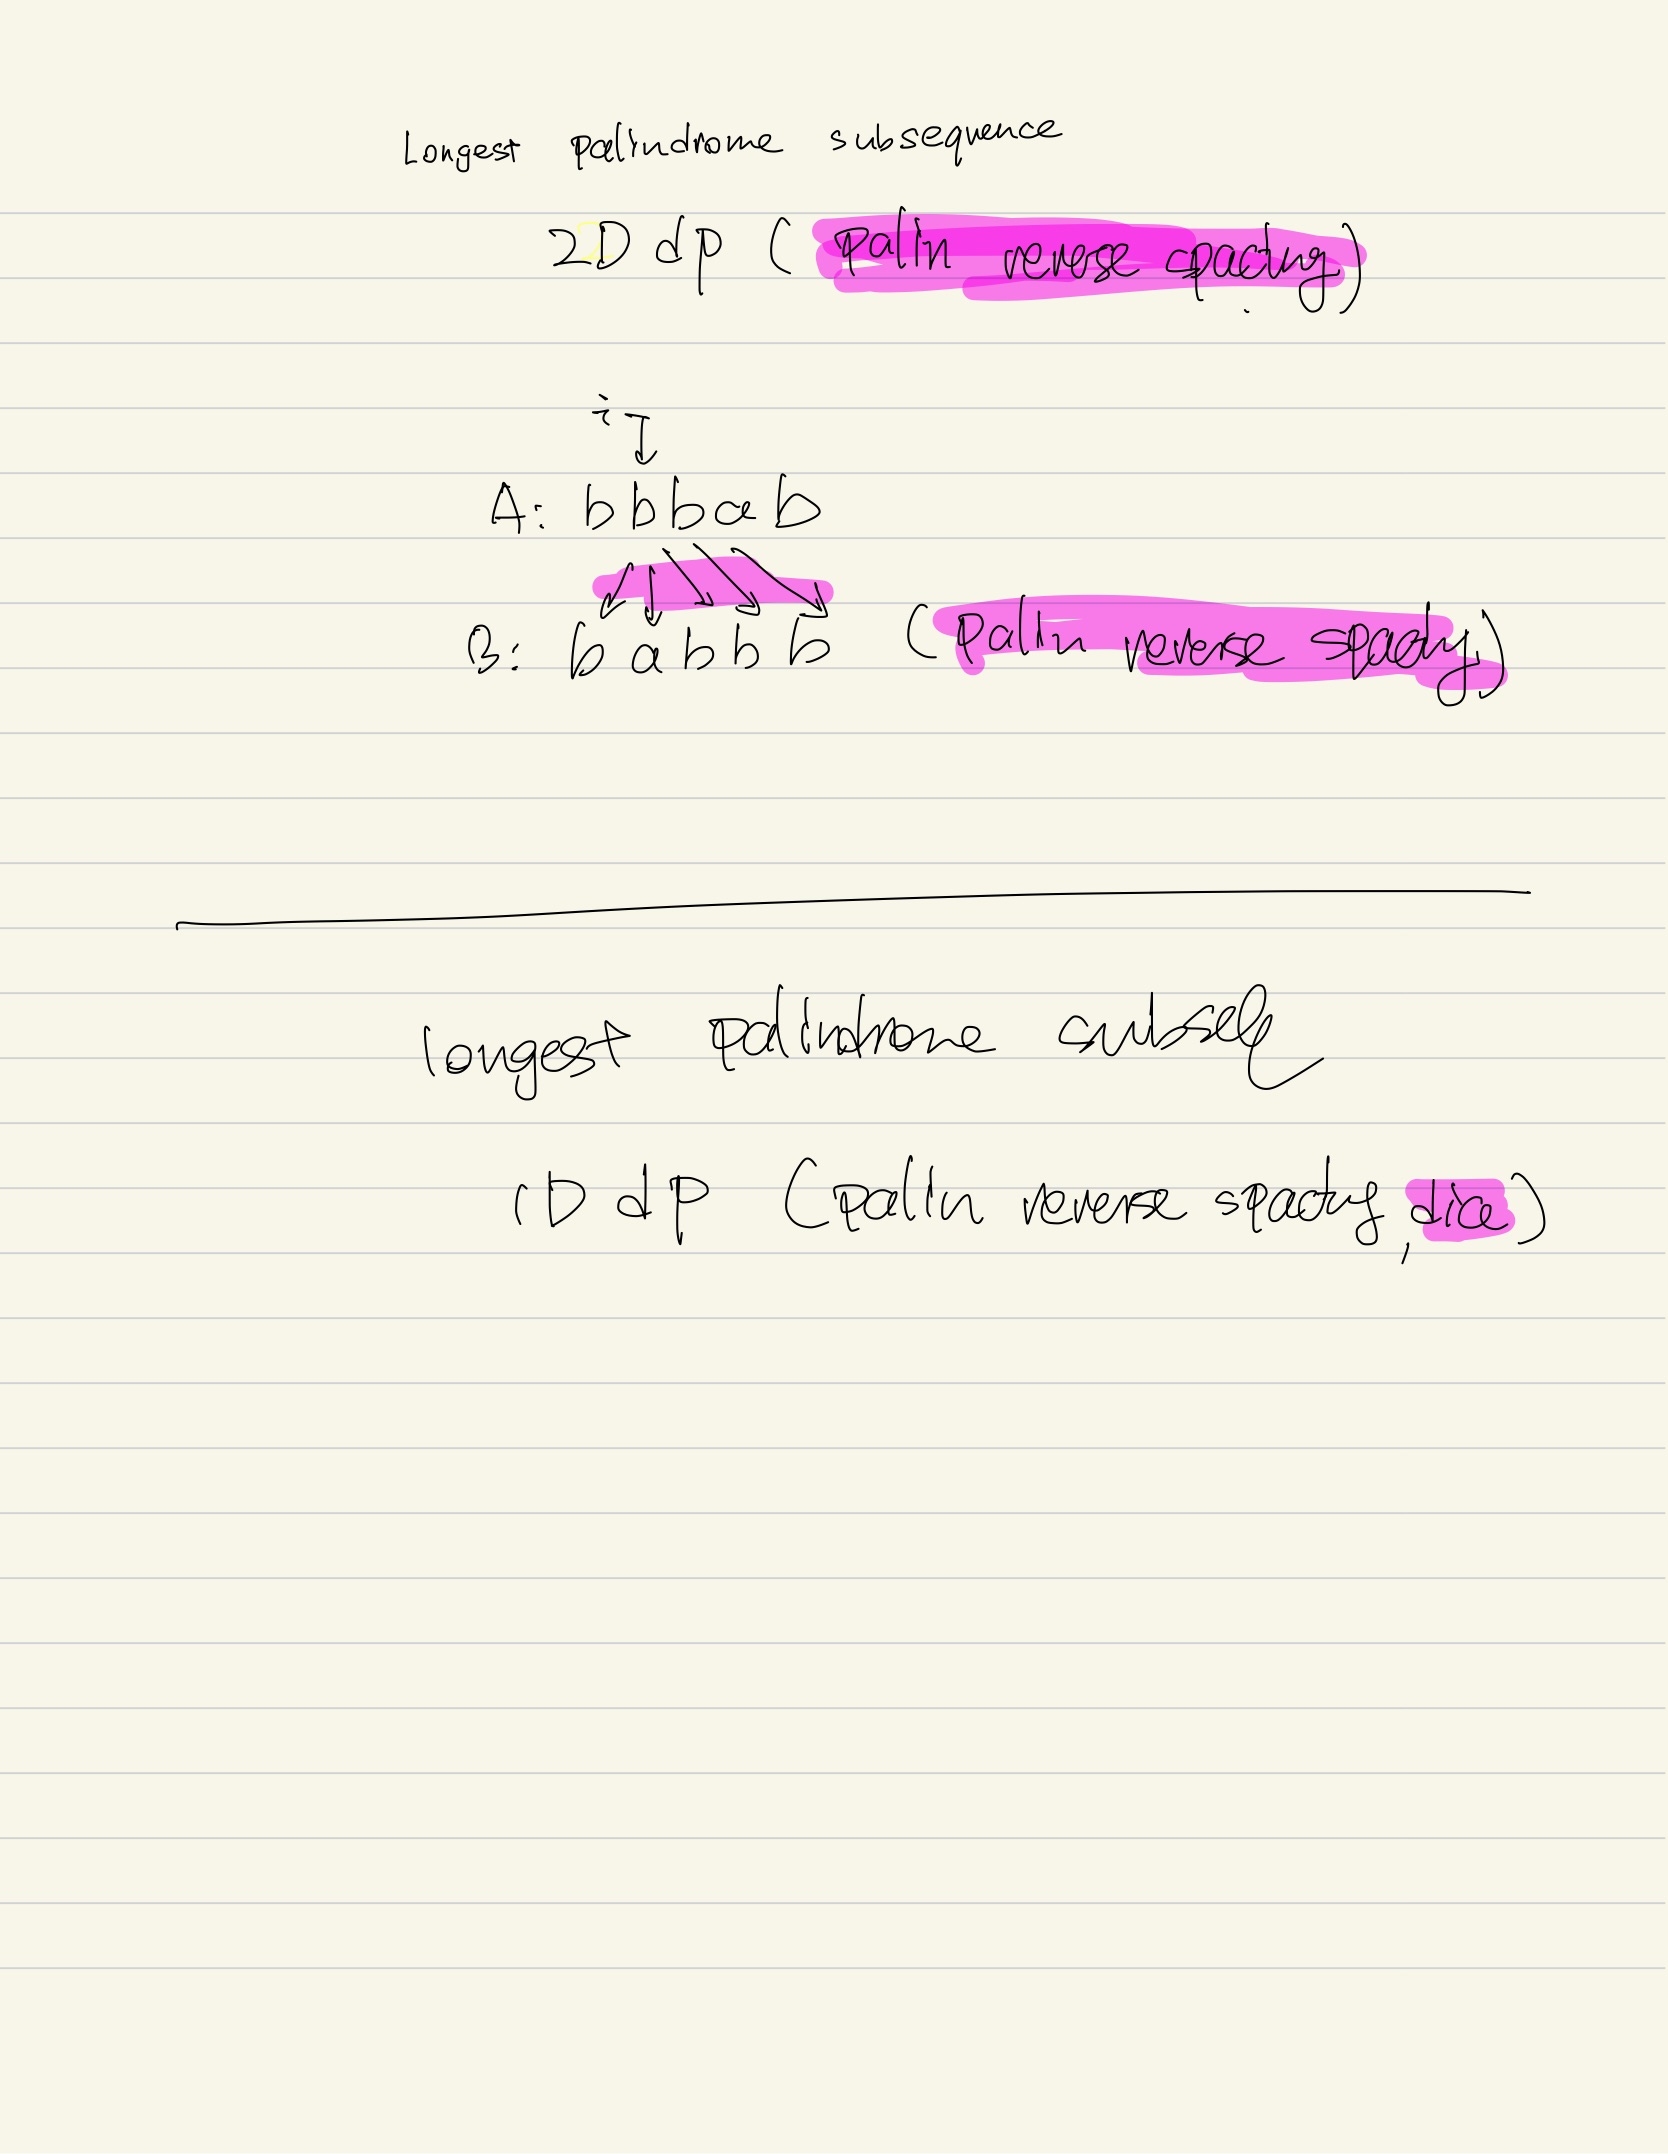 Longest palindrome subsequence
2D dp (palin reverse spacing)
i
A: bbbab
B: babbb (palin reverse spacing)
longest palindrome subseq
1D dp (palin reverse spacing, dice)